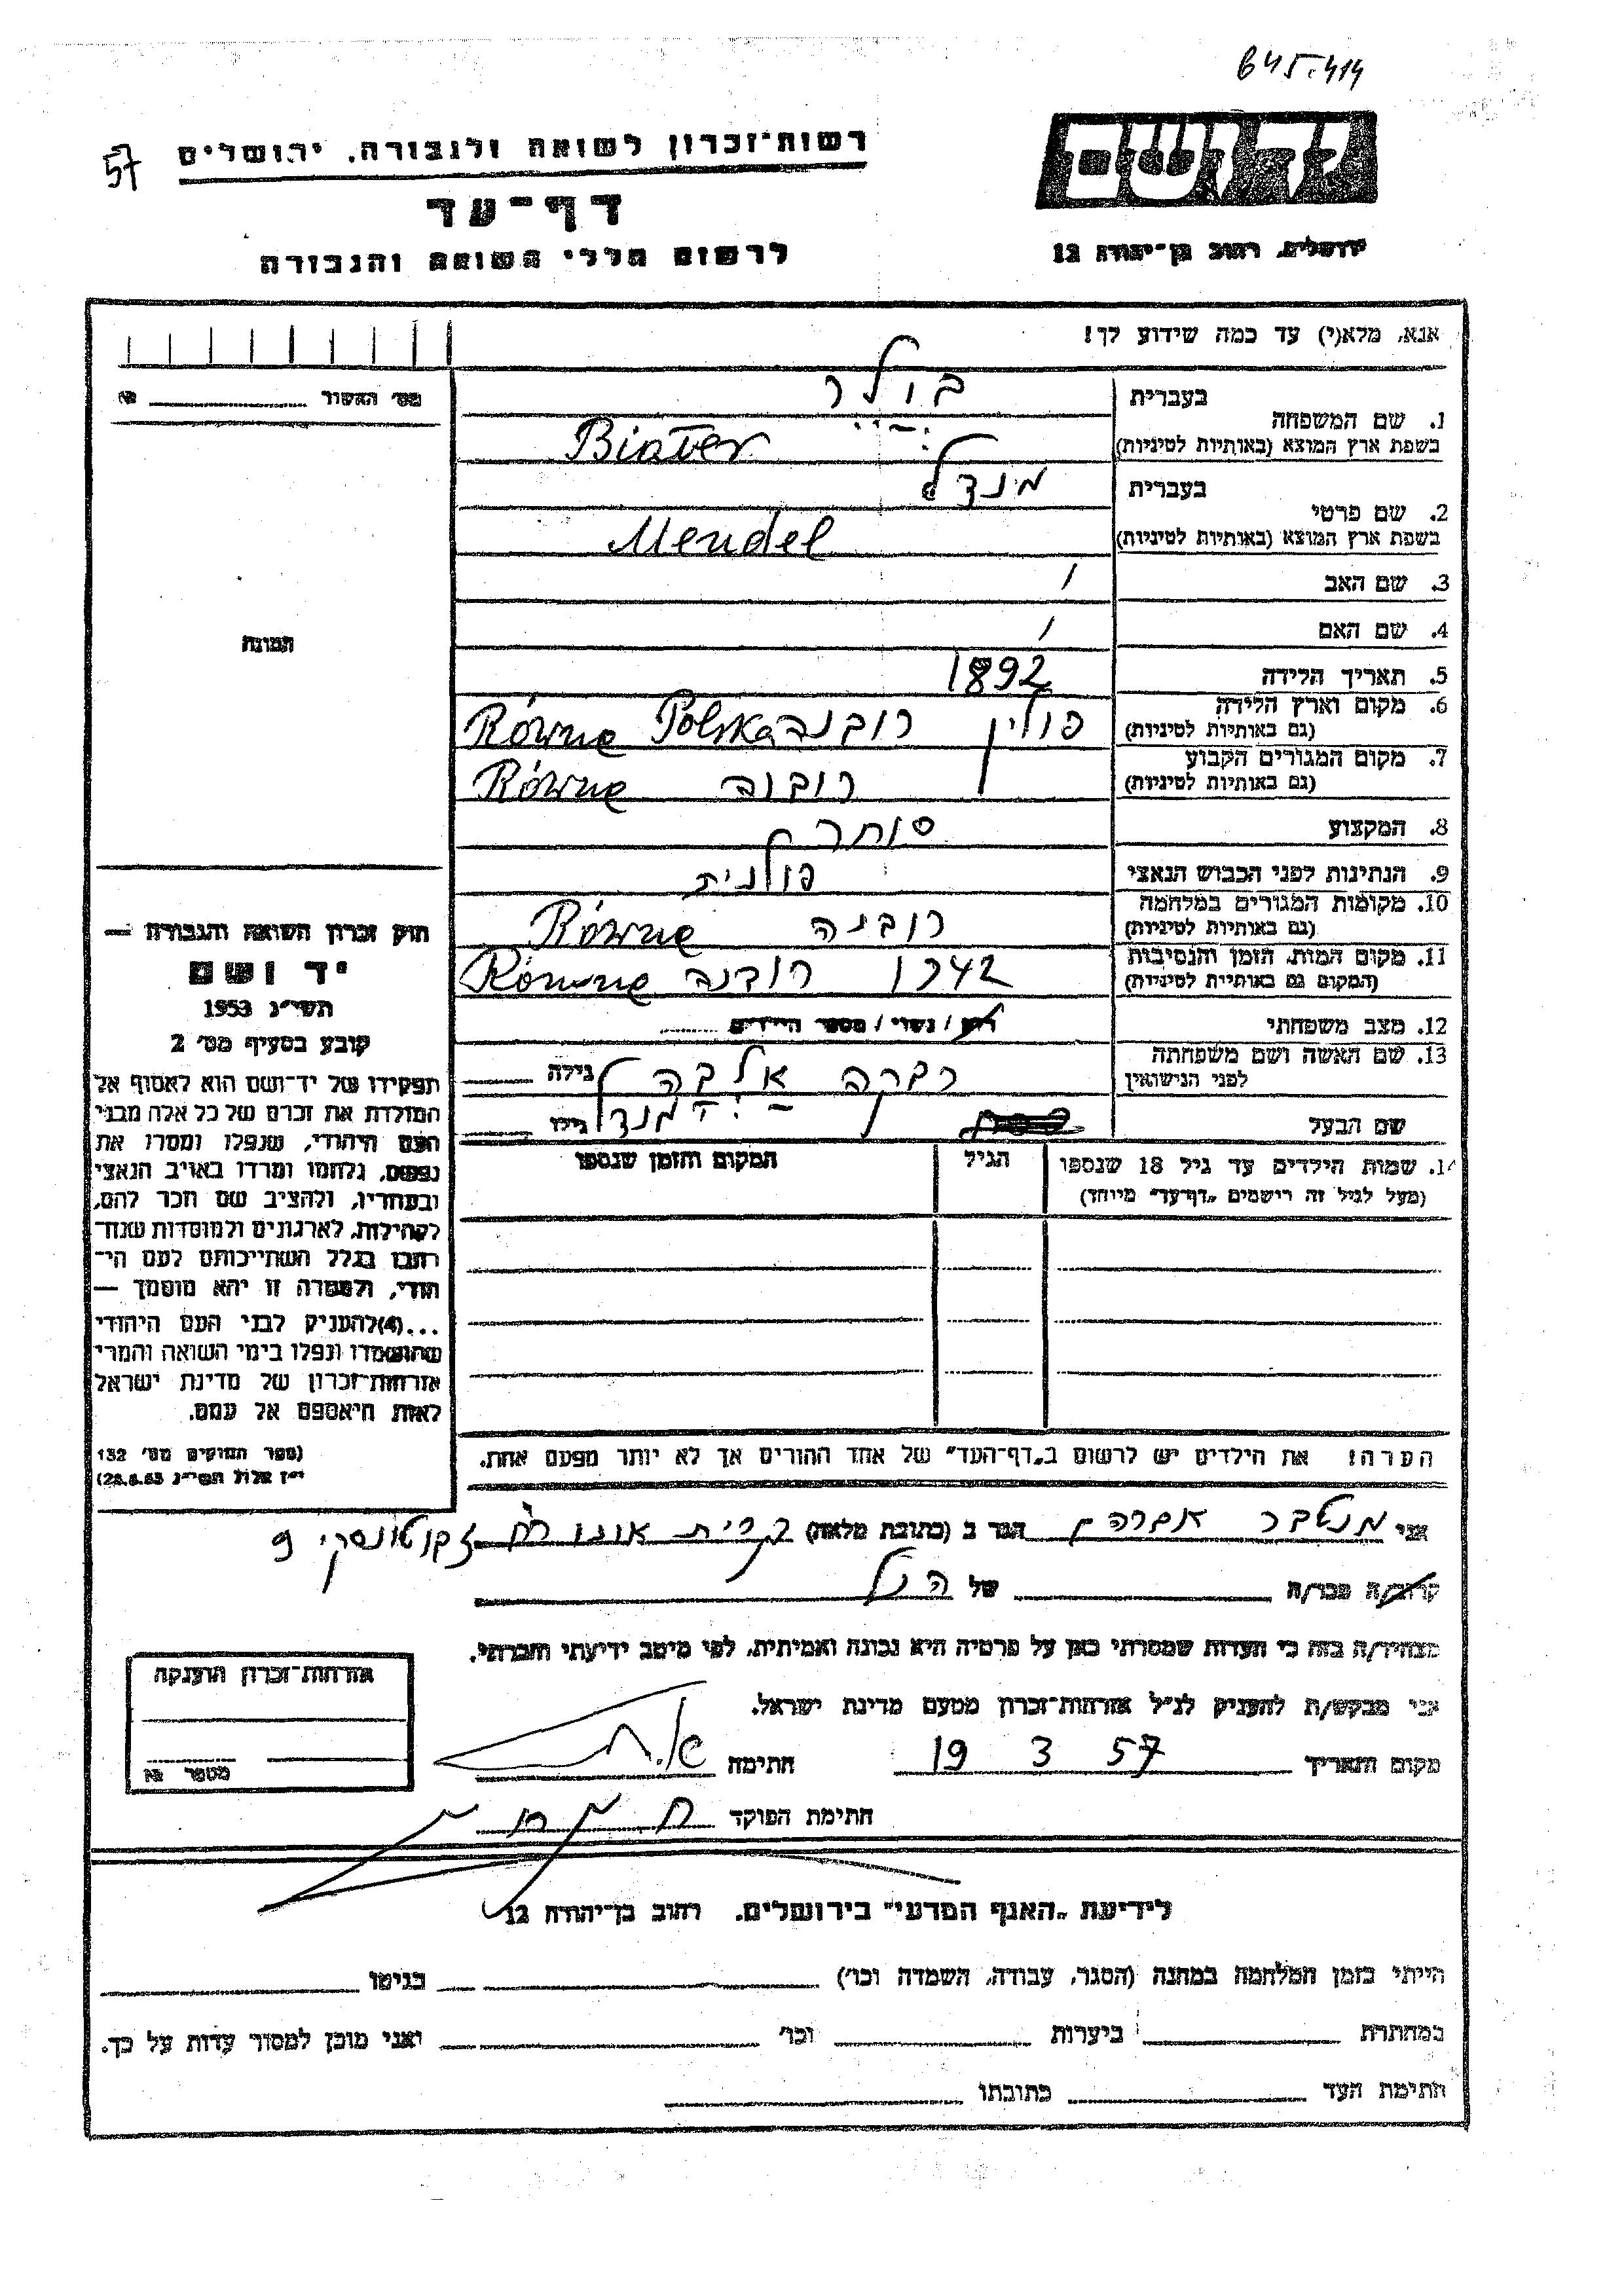 645.414
57
רשות־זכרון לשואה ולגבורה, ירושלים
דף־עד
לרשום חללי השואה והגבורה
ידושם
ירושלים, רחוב בן־יהודה 12
אנא, מלא(י) עד כמה שידוע לך!
מס׳ האשור
1. שם המשפחה
בעברית
בשפת ארץ המוצא (באותיות לטיניות)
Biater
2. שם פרטי
בעברית מנדל
בשפת ארץ המוצא (באותיות לטיניות) Mendel
3. שם האב /
4. שם האם /
5. תאריך הלידה 1892
6. מקום וארץ הלידה
(גם באותיות לטיניות)
פולין רובנה Polska Równe
7. מקום המגורים הקבוע
(גם באותיות לטיניות)
רובנה Równe
8. המקצוע סוחר
9. הנתינות לפני הכבוש הנאצי פולנית
10. מקומות המגורים במלחמה
(גם באותיות לטיניות)
רובנה Równe
11. מקום המות, הזמן והנסיבות
(המקום גם באותיות לטיניות)
1942 רובנה Równe
12. מצב משפחתי רווק / נשוי / מספר הילדים
13. שם האשה ושם משפחתה
לפני הנישואין
רבקה גילה
שם הבעל מנדל גילו
14. שמות הילדים עד גיל 18 שנספו הגיל המקום והזמן שנספו
(מעל לגיל זה רישמים „דף־עד" מיוחד)
הערה! את הילדים יש לרשום ב„דף־העד" של אחד ההורים אך לא יותר מפעם אחת.
התמונה
חוק זכרון השואה והגבורה —
יד ושם
תשי״ג 1953
קובע בסעיף מס׳ 2
תפקידו של יד־ושם הוא לאסוף אל
המולדת את זכרם של כל אלה מבני
העם היהודי, שנפלו ומסרו את
נפשם, נלחמו ומרדו באויב הנאצי
ובעוזריו, ולהציב שם וזכר להם,
לקהילות, לארגונים ולמוסדות שנח־
רבו בגלל השתייכותם לעם הי־
הודי, ולמטרה זו יהא מוסמך —
...(4)להעניק לבני העם היהודי
שהושמדו ונפלו בימי השואה והמרי
אזרחות־זכרון של מדינת ישראל
לאות היאספם אל עמם.
(ספר החוקים מס׳ 132
י״ז אלול תשי״ג 28.8.53)
אני אברהם הגר ב (כתובת מלאה) קרית אונו רח׳ ז'בוטינסקי 9
קרוב/ה מכר/ה של הנ״ל
מצהיר/ה בזה כי העדות שמסרתי כאן על פרטיה היא נכונה ואמיתית, לפי מיטב ידיעתי והכרתי.
אני מבקש/ת להעניק לנ״ל אזרחות־זכרון מטעם מדינת ישראל.
מקום ותאריך 19 3 57 חתימה
חתימת הפוקד
אזרחות־זכרון הוענקה
מספר
לידיעת „האגף המדעי" בירושלים, רחוב בן־יהודה 12
הייתי בזמן המלחמה במחנה (הסגר, עבודה, השמדה וכו׳) בגיטו
במחתרת ביערות וכו׳ ואני מוכן למסור עדות על כך.
חתימת העד כתובתו